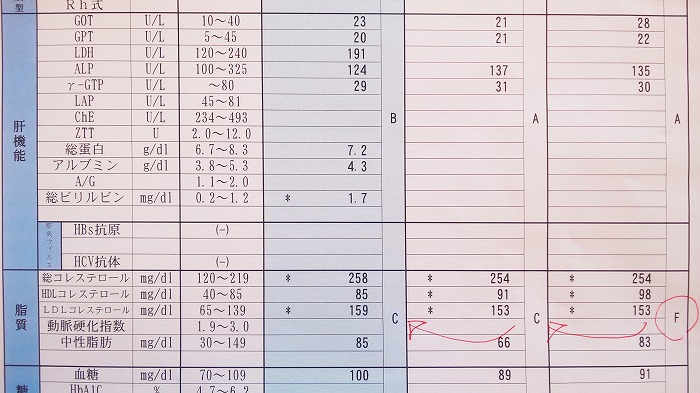 型 Rh式
GOT U/L 10～40 23 21 28
GPT U/L 5～45 20 21 22
LDH U/L 120～240 191
ALP U/L 100～325 124 137 135
γ-GTP U/L ～80 29 31 30
LAP U/L 45～81
肝機能 ChE U/L 234～493 B A A
ZTT U 2.0～12.0
総蛋白 g/dl 6.7～8.3 7.2
アルブミン g/dl 3.8～5.3 4.3
A/G 1.1～2.0
総ビリルビン mg/dl 0.2～1.2 * 1.7
肝炎ウィルス HBs抗原 (-)
HCV抗体 (-)
総コレステロール mg/dl 120～219 * 258 * 254 * 254
HDLコレステロール mg/dl 40～85 85 * 91 * 98
脂質 LDLコレステロール mg/dl 65～139 * 159 C * 153 C * 153 F
動脈硬化指数 1.9～3.0
中性脂肪 mg/dl 30～149 85 66 83
糖 血糖 mg/dl 70～109 100 89 91
HbA1C % 4.7～6.2